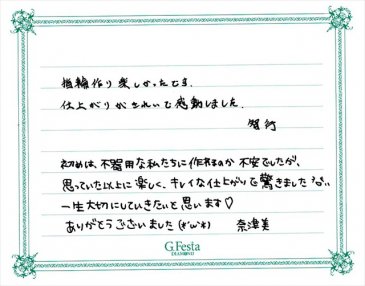 指輪作り楽しかったです。
仕上がりがきれいで感動しました。
智行
初めは、不器用な私たちに作れるのか不安でしたが、
思っていた以上に楽しく、キレイな仕上がりで驚きました
一生大切にしていきたいと思います♡
ありがとうございました(*'ω'*) 奈津美
G.Festa
DIAMOND